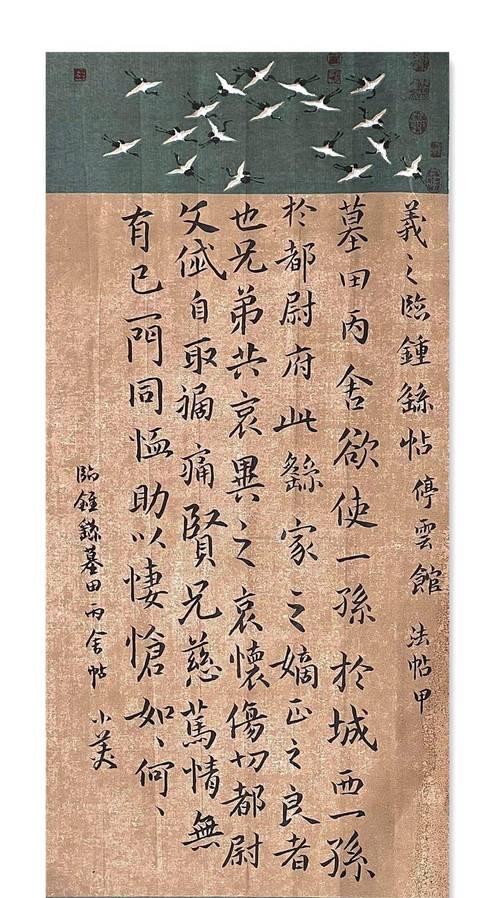 羲之臨鍾繇帖 停雲館 法帖甲
墓田丙舍欲使一孫於城西一孫
於都尉府此繇家之嫡正之良者
也兄弟共哀異之哀懷傷切都尉
文岱自取禍痛賢兄慈篤情無
有已一門同恤助以悽愴如、何、
臨鍾繇墓田丙舍帖 小美